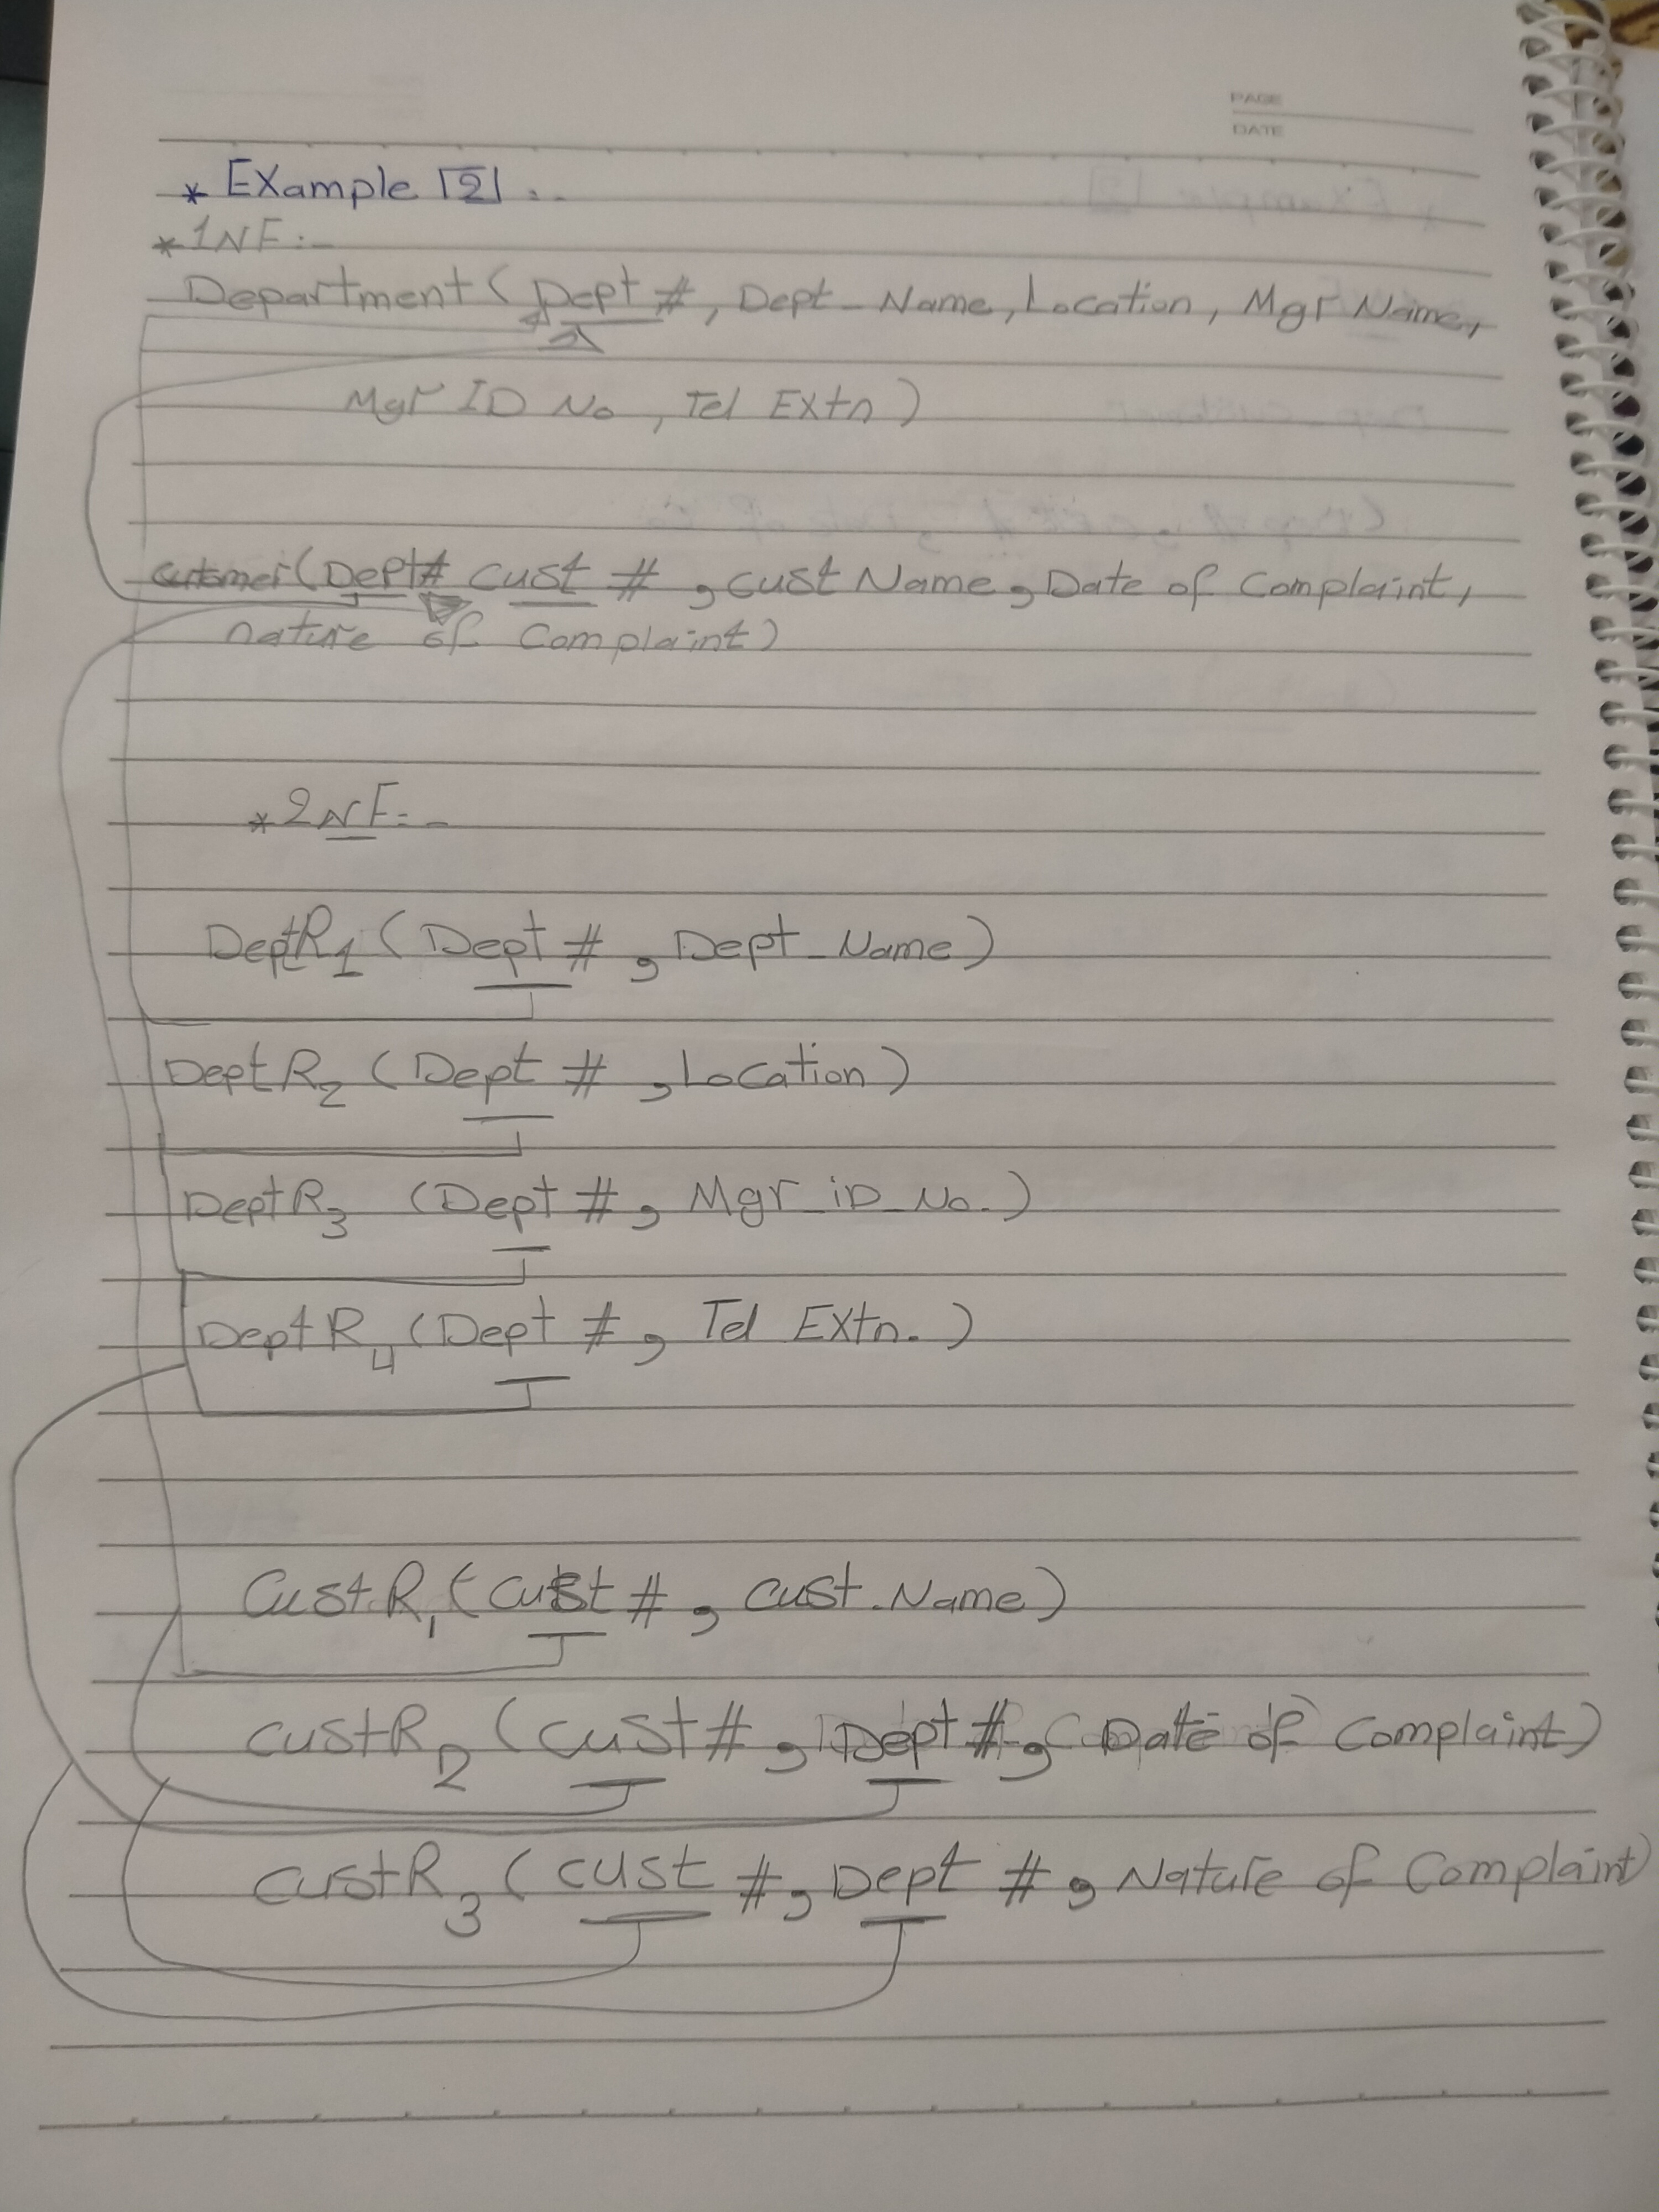 PAGE
DATE
* EXample [2] :-
* 1NF:-
Department ( Dept #, Dept_Name, Location, Mgr Name,
Mgr ID No, Tel Extn )
Customer (Dept# Cust #, Cust Name, Date of Complaint,
nature of Complaint)
* 2NF:-
DeptR1 ( Dept #, Dept_Name)
Dept R2 ( Dept #, Location )
Dept R3 (Dept #, Mgr_iD_No.)
Dept R4 (Dept #, Tel Extn.)
Cust R1 (Cust #, Cust.Name)
CustR2 (Cust #, Dept #, Date of Complaint)
CustR3 ( Cust #, Dept #, Nature of Complaint)